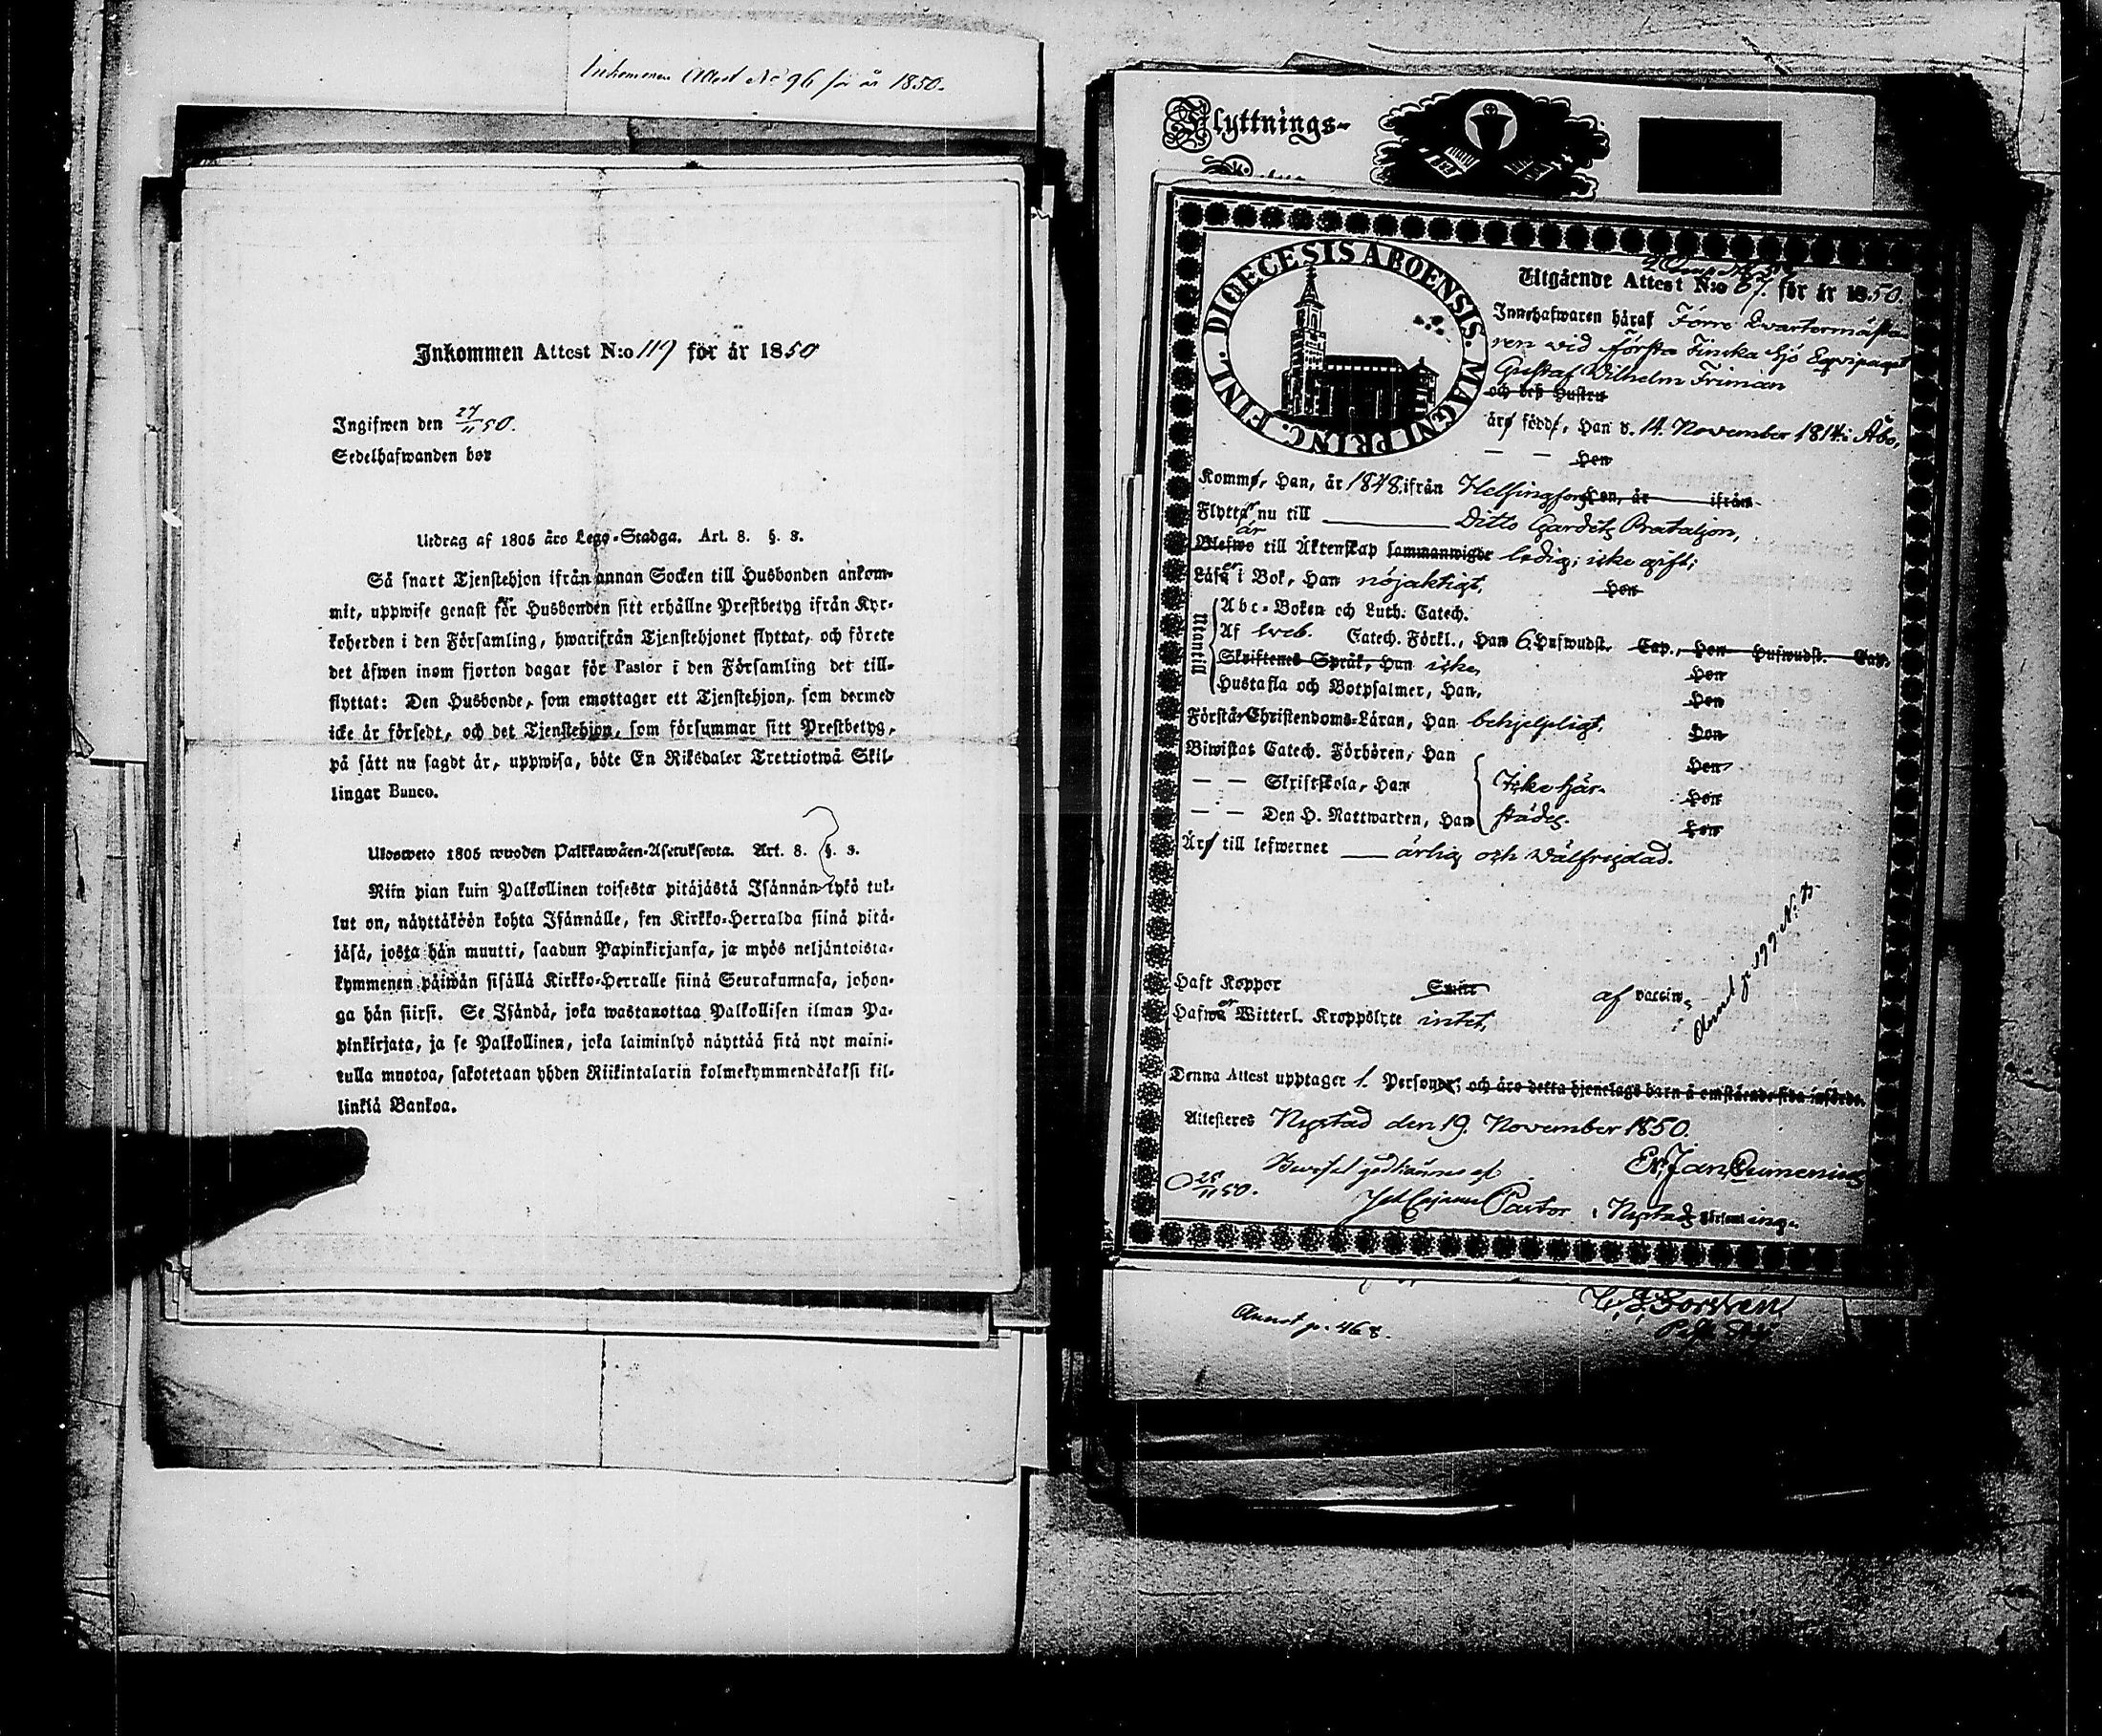 Inkommen Attest No 96 för år 1850.
Inkommen Attest N:o 119 för år 1850
Ingifwen den 27/11 50.
Sedelhafwanden bor
Utdrag af 1805 års Lego-Stadga. Art. 8. §. 3.
Så snart Tjenstehjon ifrån annan Socken till Husbonden ankom-
mit, uppwise genast för Husbonden sitt erhållne Prestbetyg ifrån Kyr-
koherden i den Församling, hwarifrån Tjenstehjonet flyttat, och förete
det åfwen inom fjorton dagar för Pastor i den Församling det till-
flyttat: Den Husbonde, som emottager ett Tjenstehjon, som dermed
icke är försedt, och det Tjenstehjon, som försummar sitt Prestbetyg,
på sätt nu sagdt är, uppwisa, böte En Riksdaler Trettiotwå Skil-
lingar Banco.
Ulosweto 1805 wuoden Palkkawäen-Asetuksesta. Art. 8. §. 3.
Niin pian kuin Palkollinen toisesta pitäjästä Isännän tykö tul-
lut on, näyttäköön kohta Isännälle, sen Kirkko-Herralda siinä pitä-
jäsä, josta hän muutti, saadun Papinkirjansa, ja myös neljäntoista-
kymmenen päiwän sisällä Kirkko-Herralle siinä Seurakunnasa, johon-
ga hän siirsi. Se Isändä, joka wastanottaa Palkollisen ilman Pa-
pinkirjata, ja se Palkollinen, joka laiminlyö näyttää sitä nyt maini-
tulla muotoa, sakotetaan yhden Riikintalarin kolmekymmendäkaksi kil-
linkiä Bankoa.
Flyttnings-
DIOECESIS ABOENSIS. MAGNI PRINC. FINL.
Utgående Attest N:o 67. för år 1850.
Innehafwaren häraf Förre Qvartermästa-
ren vid första Finska Sjö Eqvipaget
Gustaf Wilhelm Friman
och dess Hustru
äro född, Han d. 14. November 1814 i Åbo,
— — Hon
Komme, Han, år 1848. ifrån Helsingfors Hon, år ifrån
Flyttar nu till Ditto Gardets Bataljon,
är
Blefwo till Äktenskap sammanwigde ledig; icke gift;
Läser i Bok, Han nöjaktigt, Hon
Utantill
Abc-Boken och Luth. Catech.
Af Catech. Förkl., Han 6. Hufwudst. Cap., Hon Hufwudst. Cap.
Skriftenes Språk, Han icke, Hon
Hustafla och Botpsalmer, Han, Hon
Förstår Christendoms-Läran, Han behjelpligt, Hon
Biwistat Catech. Förhören, Han Hon
— — Skriftskola, Han Icke här- Hon
— — Den H. Nattwarden, Han städes. Hon
Äro till lefwernet ärlig och välfrejdad.
Haft Koppor Smitt af vaccin,
Hafwer Witterl. Kroppslyte intet,
Annot p. 199 N:
Denna Attest upptager 1. Personer, och äro detta hjonelags barn å omstående sida införde.
Attesteras Nystad den 19. November 1850.
Er. Jan. Qumenius
28/11 50.
Pastor i Nystads Församling.
Annot p. 468.